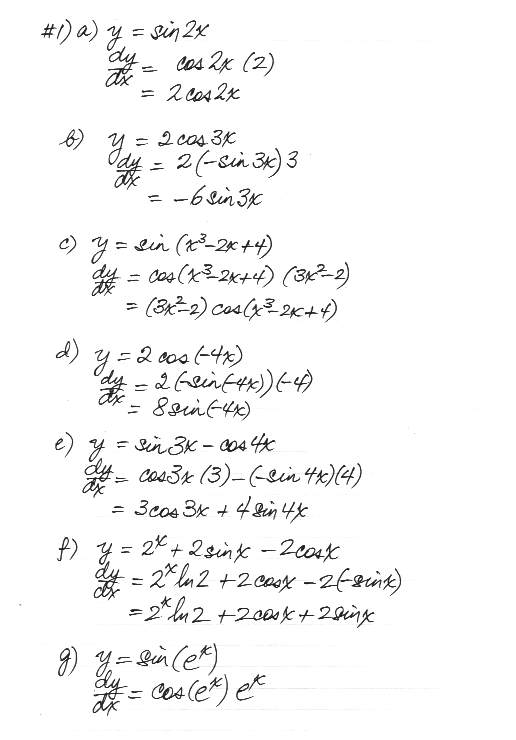 #1) a) y = sin 2x
dy/dx = cos 2x (2)
= 2 cos 2x
b) y = 2 cos 3x
dy/dx = 2(-sin 3x) 3
= -6 sin 3x
c) y = sin (x³-2x+4)
dy/dx = cos (x³-2x+4) (3x²-2)
= (3x²-2) cos (x³-2x+4)
d) y = 2 cos (-4x)
dy/dx = 2 (-sin(-4x)) (-4)
= 8 sin (-4x)
e) y = sin 3x - cos 4x
dy/dx = cos 3x (3) - (-sin 4x)(4)
= 3 cos 3x + 4 sin 4x
f) y = 2ˣ + 2 sin x - 2 cos x
dy/dx = 2ˣ ln 2 + 2 cos x - 2(-sin x)
= 2ˣ ln 2 + 2 cos x + 2 sin x
g) y = sin (eˣ)
dy/dx = cos (eˣ) eˣ